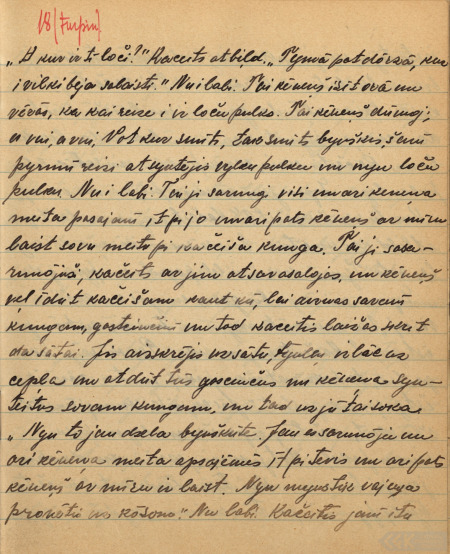 18 [Turpin.]
„A kur ir ti loči?" Kaceits atbild. „Tymā pat dorzā, kur
i vilki beja salaisti." Nu i labi. Tai kēneņš izit orā un
vērās, ka kai reize i ir loču pulks. Tai kēneņš dūmoj;
a vai, a vai. Vot kur smits, tak smits byušķis, šam
pyrmū reizi atsyutejis vylku pulku un nyu loču
pulku. Nu i labi. Tai ji sarunoj viši un ari kēneņa
meita pasajam, it pi jo un ari pats kēneņš ar miru
laist sovu meitu pi kaceiša kunga. Tai ji sasa-
runojuši, kaceits ar jim atsavasalojas, un kēneņš
vel īdūt kaceišam kaut kū, lai aiznas savam
kungam, gosteņčim un tod kaceits laižas skrīt
da sātai. Jis aizskrējis uz sātu, tyuleņ vilāc az
cepļa un atdūt tūs gosteņčus nu kēneņa syu-
teitus sovam kungam, un tod uz jū tai soka.
„Nyu to jau dzela byuškeite. Jau es sarunoju un
ari kēneņa meita apsajēmās it pi tevis un ari pats
kēneņš ar miru ir laist. Nyu
proketu us kōzom." Nu labi. Kaceits jam ita